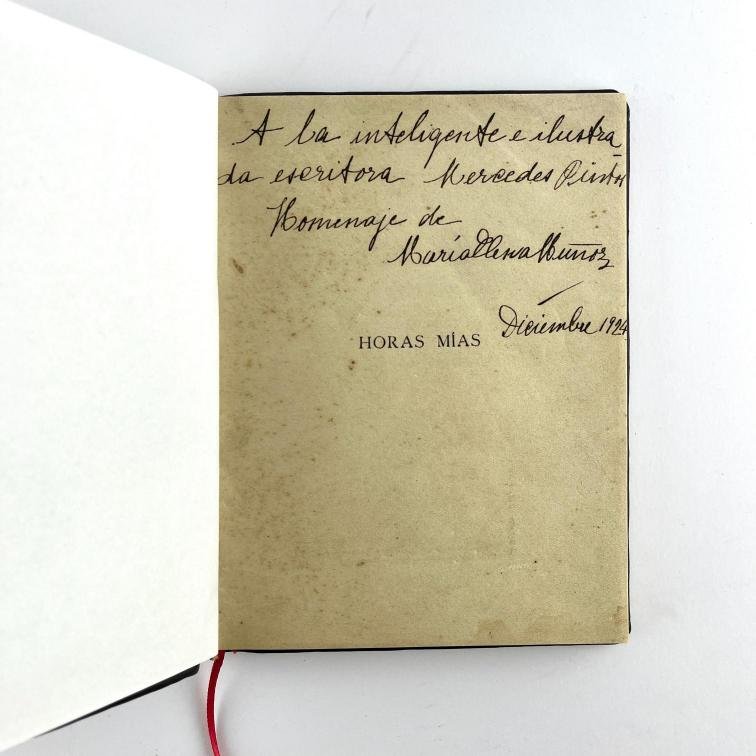 A la inteligente e ilustra
da escritora Mercedes Pinto
Homenaje de
María Elena Muñoz
Diciembre 1924
HORAS MÍAS